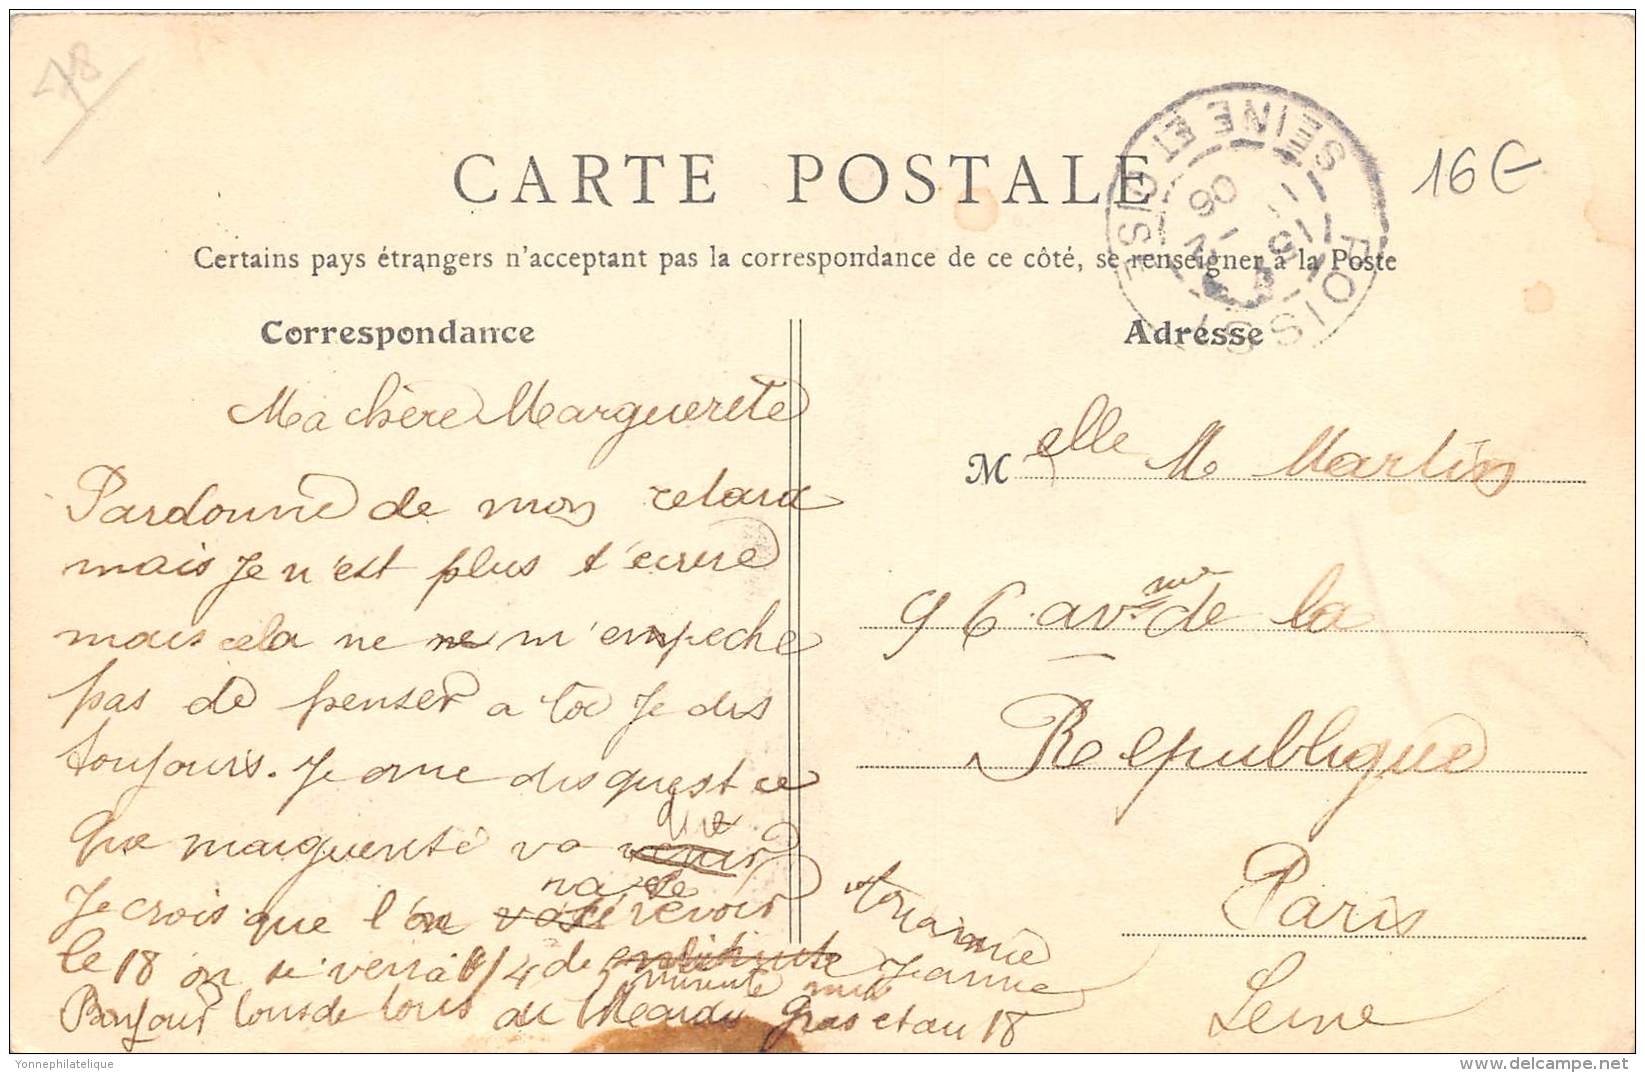 78
CARTE POSTALE
16€
SEINE ET OISE
POISSY
06
Certains pays étrangers n'acceptant pas la correspondance de ce côté, se renseigner à la Poste
Correspondance
Adresse
Ma chère Marguerete
Pardonne de mon retard
mais Je n'est plus t'ecrire
mais cela ne ne m'empeche
pas de penser a toi Je dis
toujours. Je me dis quest ce
que marguerite va
Je crois que l'on va te revoir
le 18 on se verra 1/4 de
minute
Bonjour tous de tous au Mardi Gras et au 18
ton amie
Jeanne
Melle M. Martin
96 avnue de la
Republique
Paris
Seine
Yonnephilatelique
http://www.delcampe.net